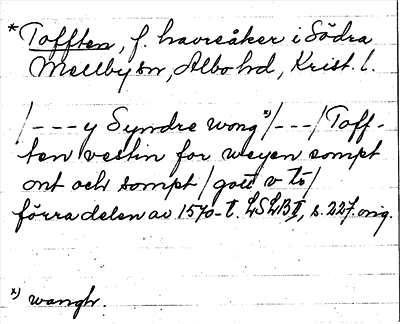 * Tofften, f. havreåker i Södra
Mellby sn, Albo hd, Krist. l.
/--- y Syndre wong x)/---/Toff-
ten vestin for weyen sompt
ont och sompt/gott v tö/
förra delen av 1570-t. LSLBI, s. 227. orig.
x) wangh.